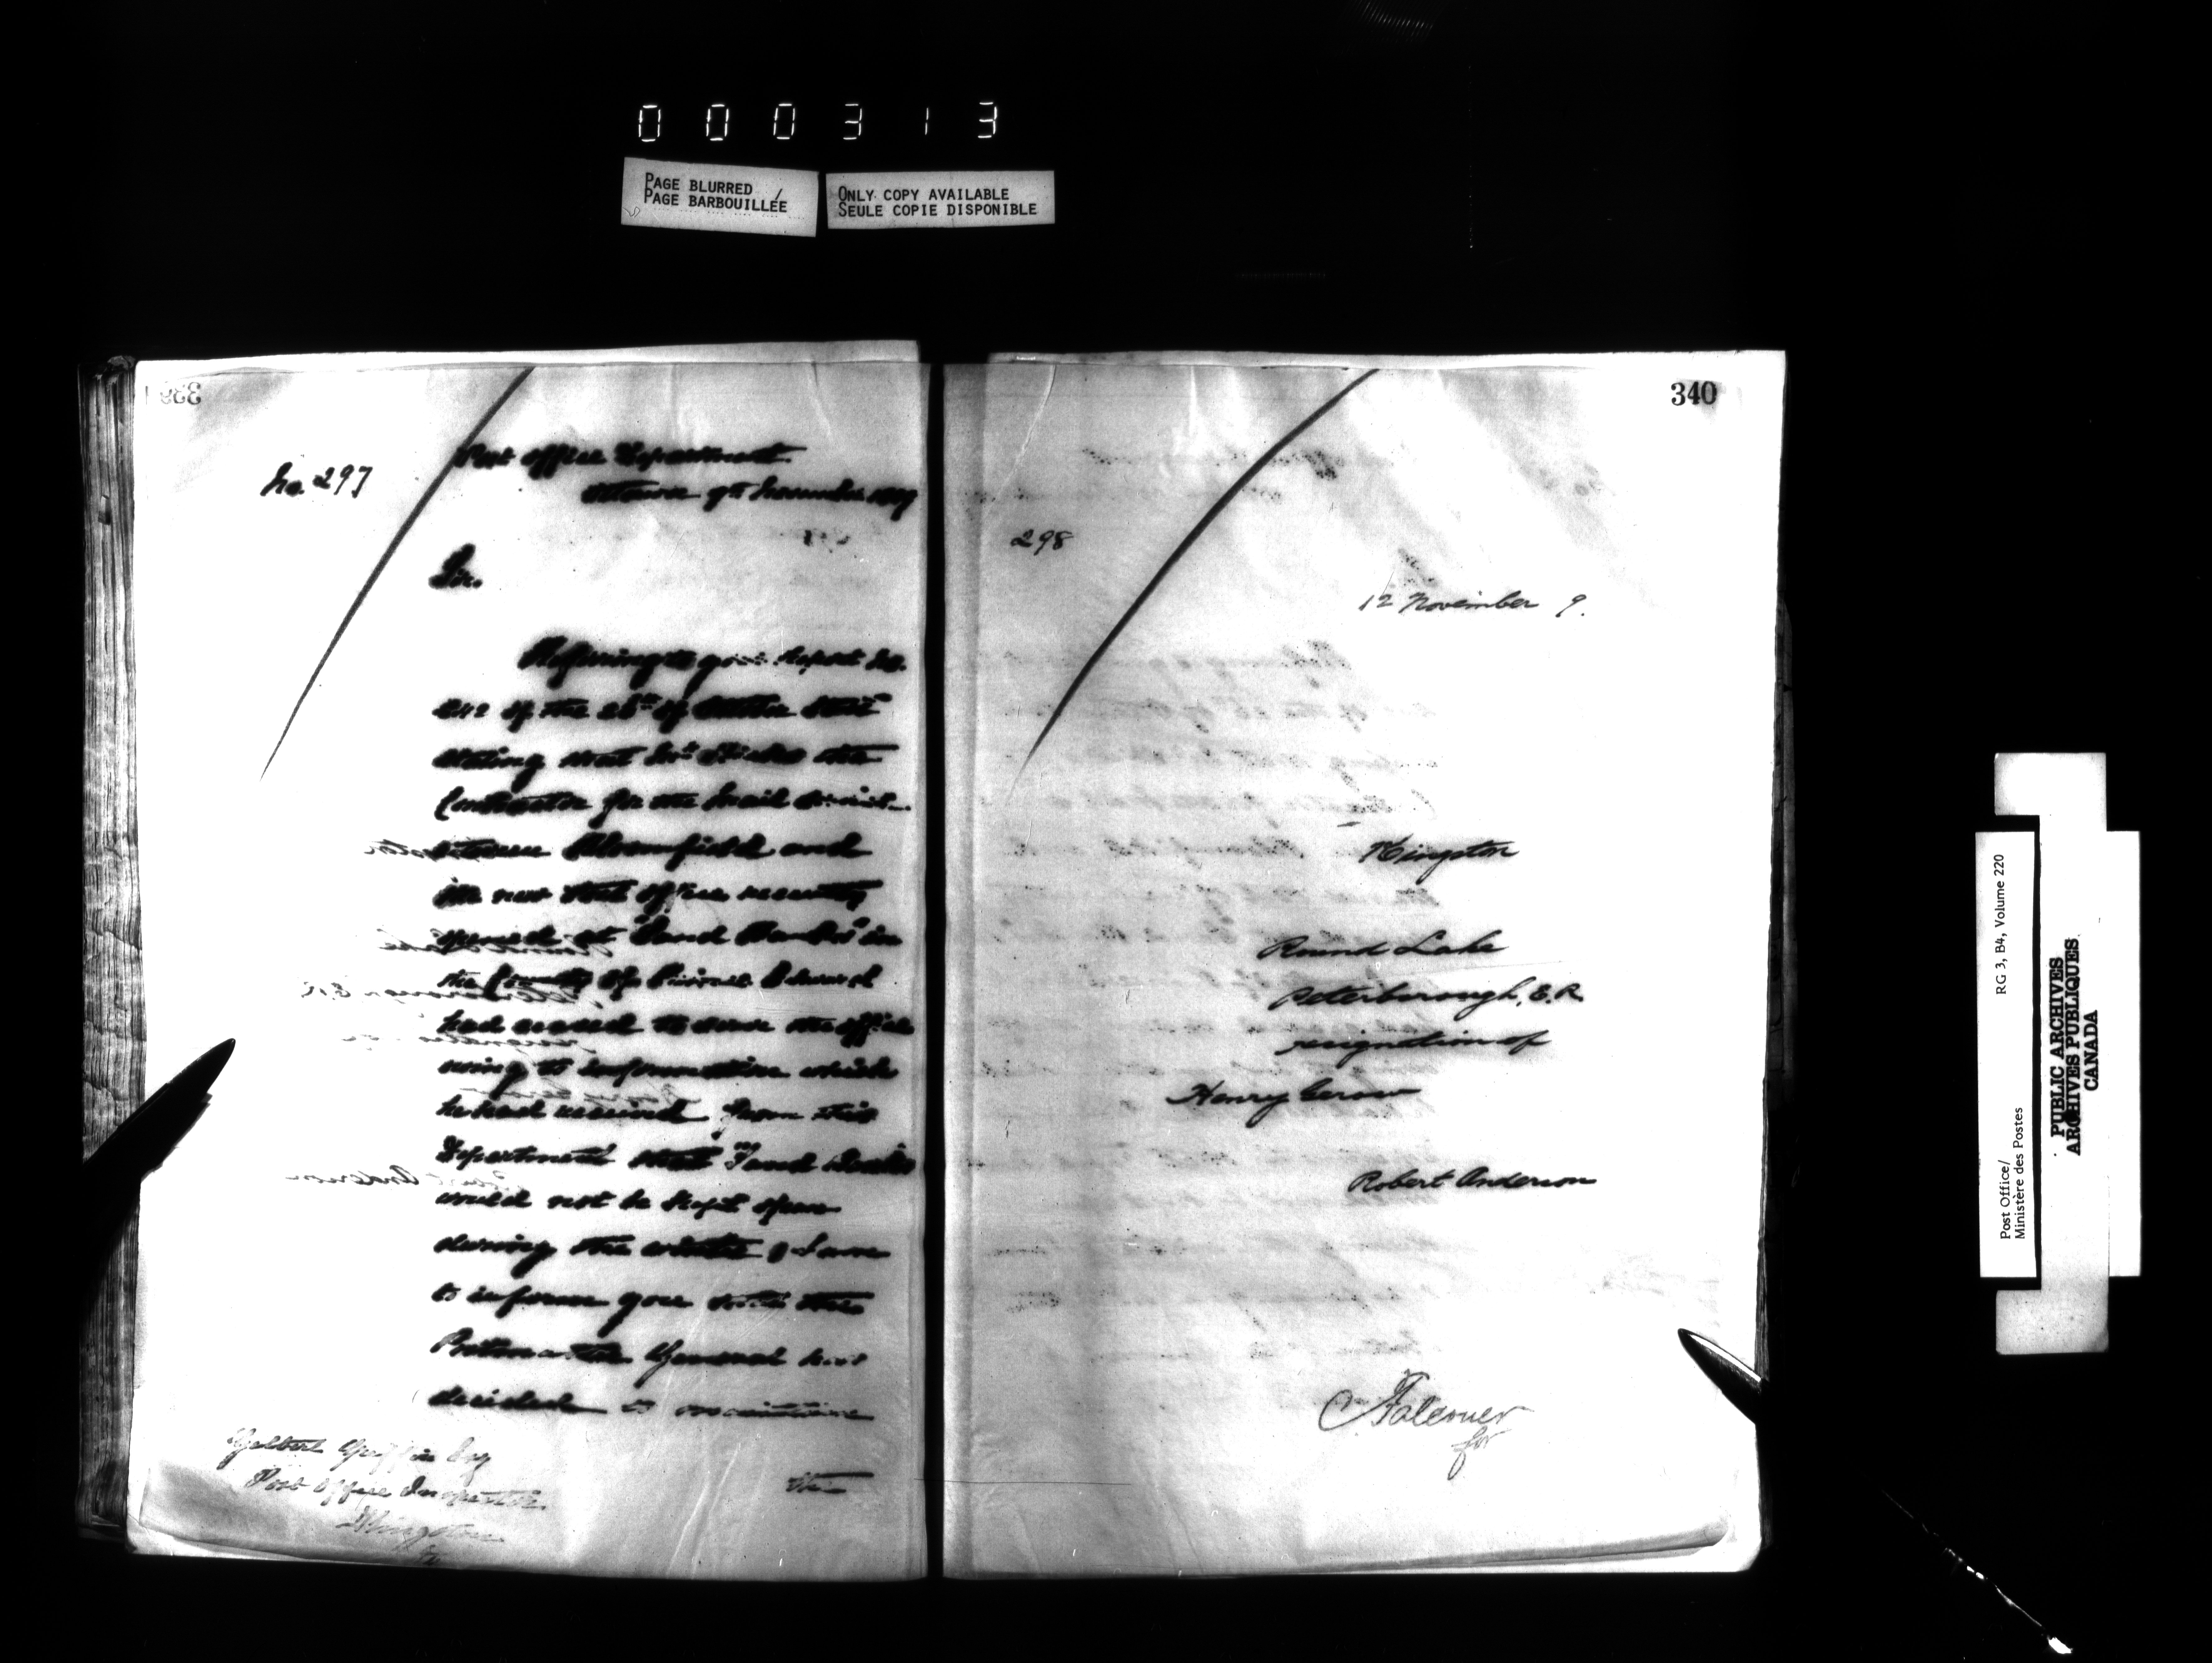 000313
PAGE BLURRED
PAGE BARBOUILLÉE
ONLY COPY AVAILABLE
SEULE COPIE DISPONIBLE
339
No. 297
Post Office Department
Ottawa 9th November
Sir.
Referring to your Report No.
242 of the 28th of
stating that the
Contractor for the Mail Service
between Bloomfield and
the new Post Office recently
opened at "Sand Banks" in
the County of Prince Edward
had ceased to serve the office
owing to information which
he had received from this
Department that "Sand Banks"
would not be kept open
during the winter, I am
to inform you that the
Postmaster General has
decided to
this
Gilbert Griffin Esq
Post Office Inspector
Kingston
340
298
12 November 9.
Kingston
Round Lake
Peterborough, E.R.
resignation of
Henry Gerow
Robert Anderson
for
Post Office/
Ministère des Postes
RG 3, B4, Volume 220
PUBLIC ARCHIVES
ARCHIVES PUBLIQUES
CANADA